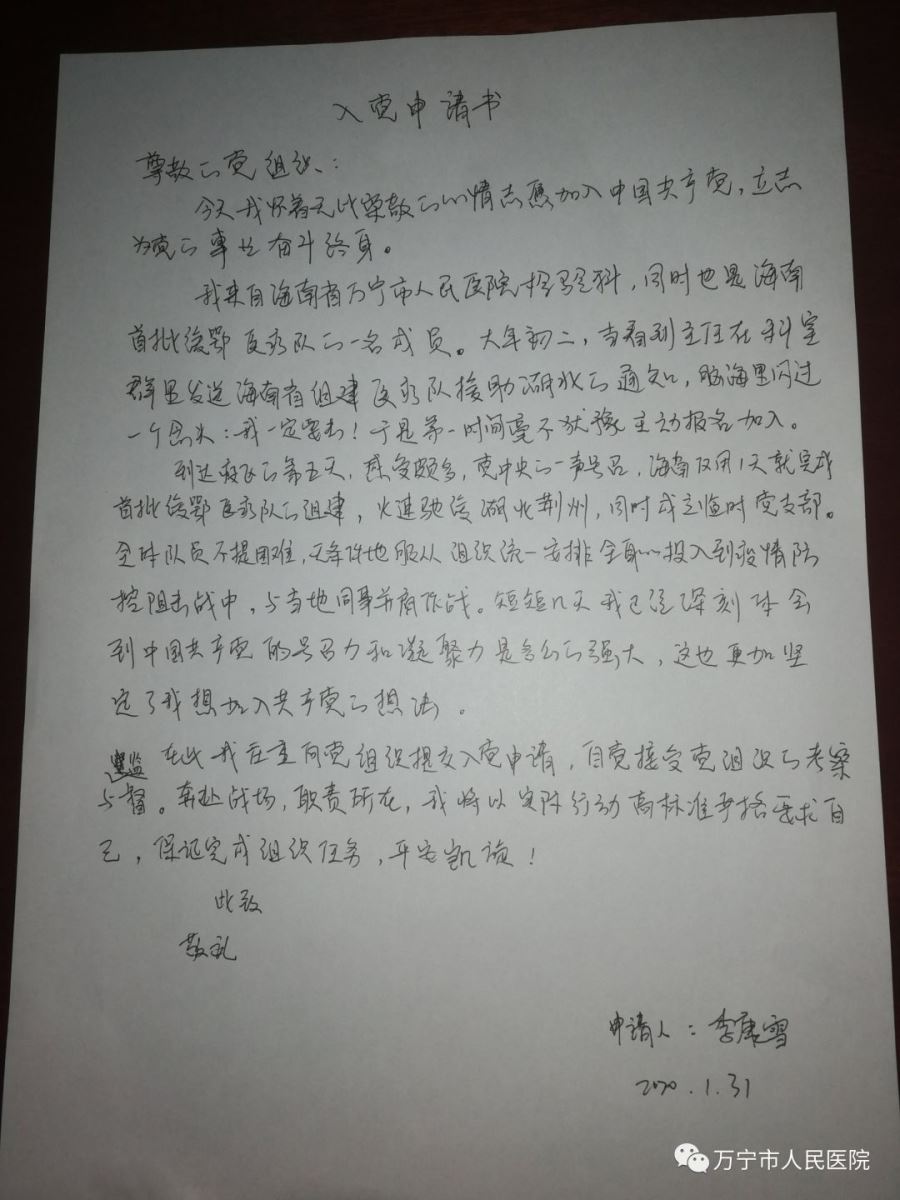 入党申请书
尊敬的党组织:
今天我怀着无比崇敬的心情志愿加入中国共产党,立志
为党的事业奋斗终身。
我来自海南省万宁市人民医院,同时也是海南
首批援鄂医疗队的一名成员。大年初二,当看到主任在科室
群里发送海南省组建医疗队援助湖北的通知,脑海里闪过
一个念头:我一定要去!于是第一时间毫不犹豫主动报名加入。
到达的第五天,感受颇多,党中央的一声号召,海南仅用1天就完成
首批援鄂医疗队的组建,火速驰援湖北荆州,同时成立临时党支部。
全体队员不提困难,无条件地服从组织统一安排全身心投入到疫情防
控阻击战中,与当地同事并肩作战。短短几天我已经深刻体会
到中国共产党的号召力和凝聚力是多么的强大,这也更加坚
定了我想加入共产党的想法。
在此我庄重向党组织提交入党申请,自觉接受党组织的考察
与监督。奔赴战场,职责所在,我将以实际行动高标准严格要求自
己,保证完成组织任务,平安凯旋!
此致
敬礼
申请人:李康雪
2020.1.31
万宁市人民医院